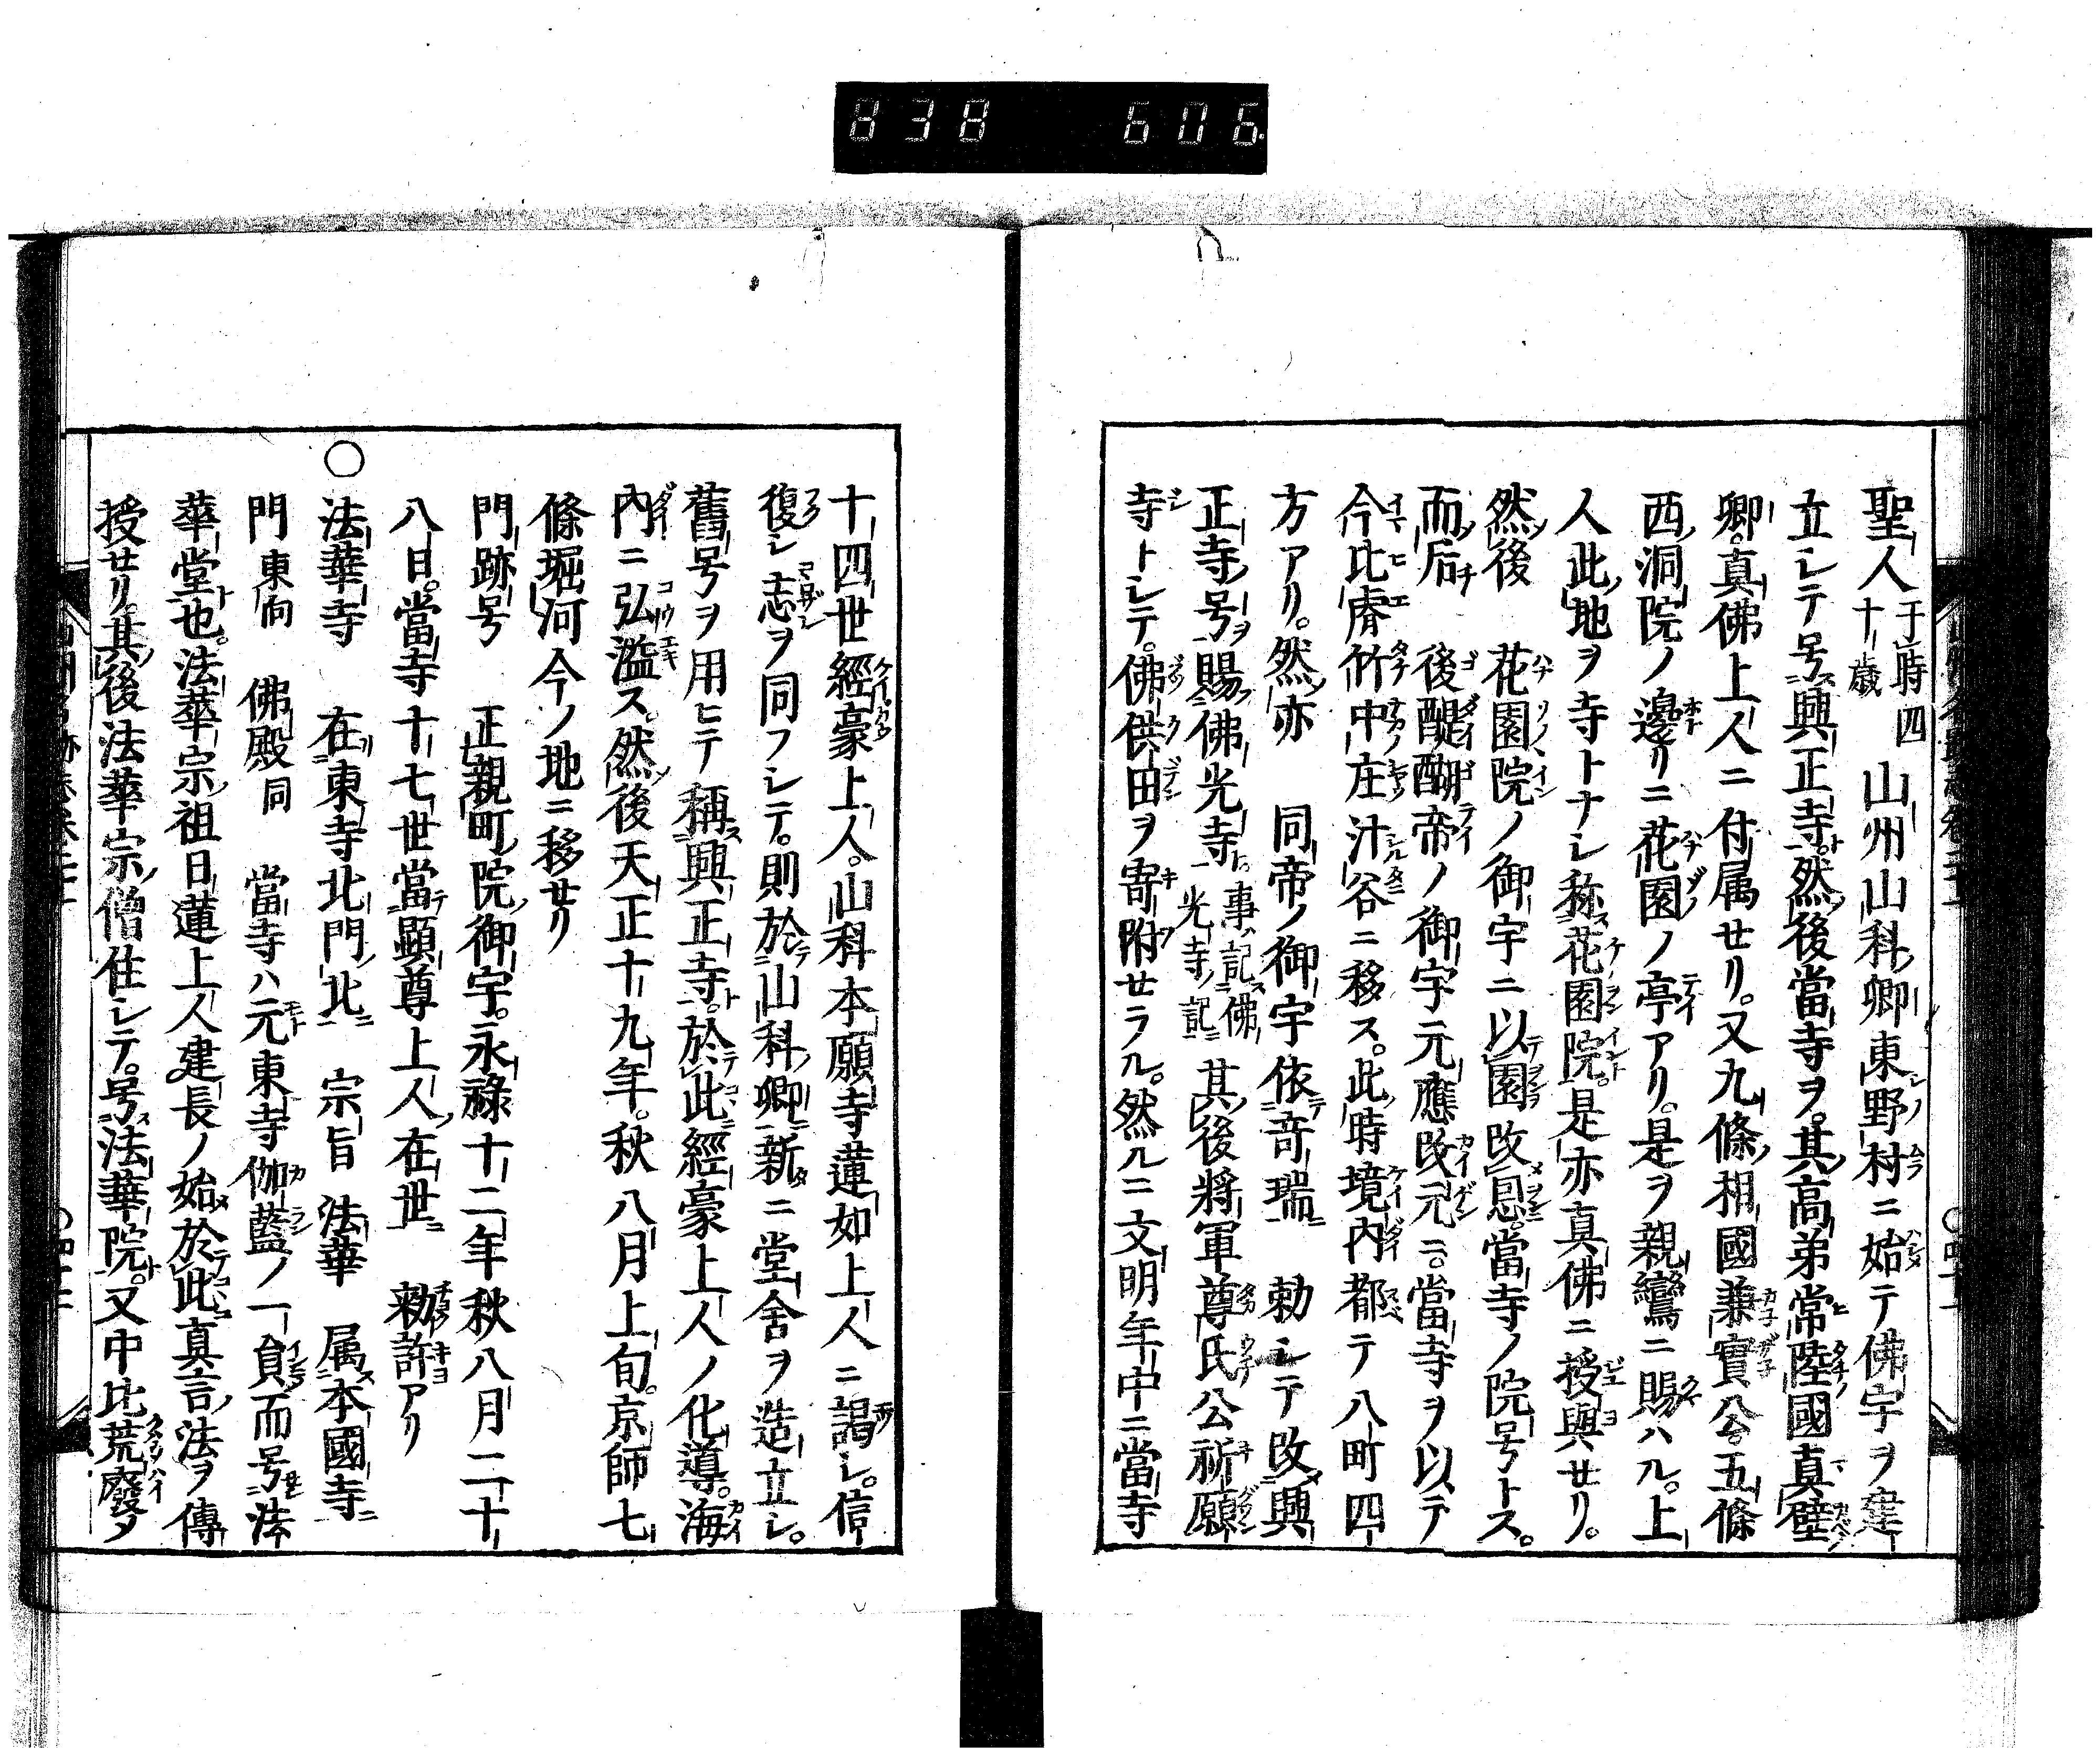 838 606
聖人于時四十歳 山州山科卿東野村ニ始テ佛宇ヲ建
立シテ号興正寺然後當寺ヲ其高弟常陸國真壁
卿真佛上人ニ付属セリ又九條相國兼實公五條
西洞院ノ邊リニ花園ノ亭アリ是ヲ親鸞ニ賜ハル上
人此地ヲ寺トナシ称花園院是亦真佛ニ授與セリ
然後 花園院ノ御宇ニ以園改恩當寺ノ院号トス
而后 後醍醐帝ノ御宇元應改元ニ當寺ヲ以テ
今比膚竹中庄汁谷ニ移ス此時境內都テ八町四
方アリ然亦 同帝ノ御宇依奇瑞 勅シテ改興
正寺号賜佛光寺事記佛光寺記 其後將軍尊氏公祈願
寺トシテ佛供田ヲ寄附セラル然ルニ文明年中ニ當寺
十四世經豪上人山科本願寺蓮如上人ニ謁シ信
復シ志ヲ同フシテ則於山科卿新ニ堂舍ヲ造立シ
舊号ヲ用ヒテ稱興正寺於此經豪上人ノ化導海
內ニ弘溢ス然後天正十九年秋八月上旬京師七
條堀河今ノ地ニ移セリ
門跡号 正親町院御宇永祿十二年秋八月二十
八日當寺十七世當顯尊上人在世 勅許アリ
○法華寺 在東寺北門北 宗旨 法華 属本國寺
門東向 佛殿同 當寺ハ元東寺伽藍ノ一貟而号法
華堂也法華宗祖日蓮上人建長ノ始於此真言法ヲ傳
授セリ其後法華宗僧住シテ号法華院又中比荒廢ノ